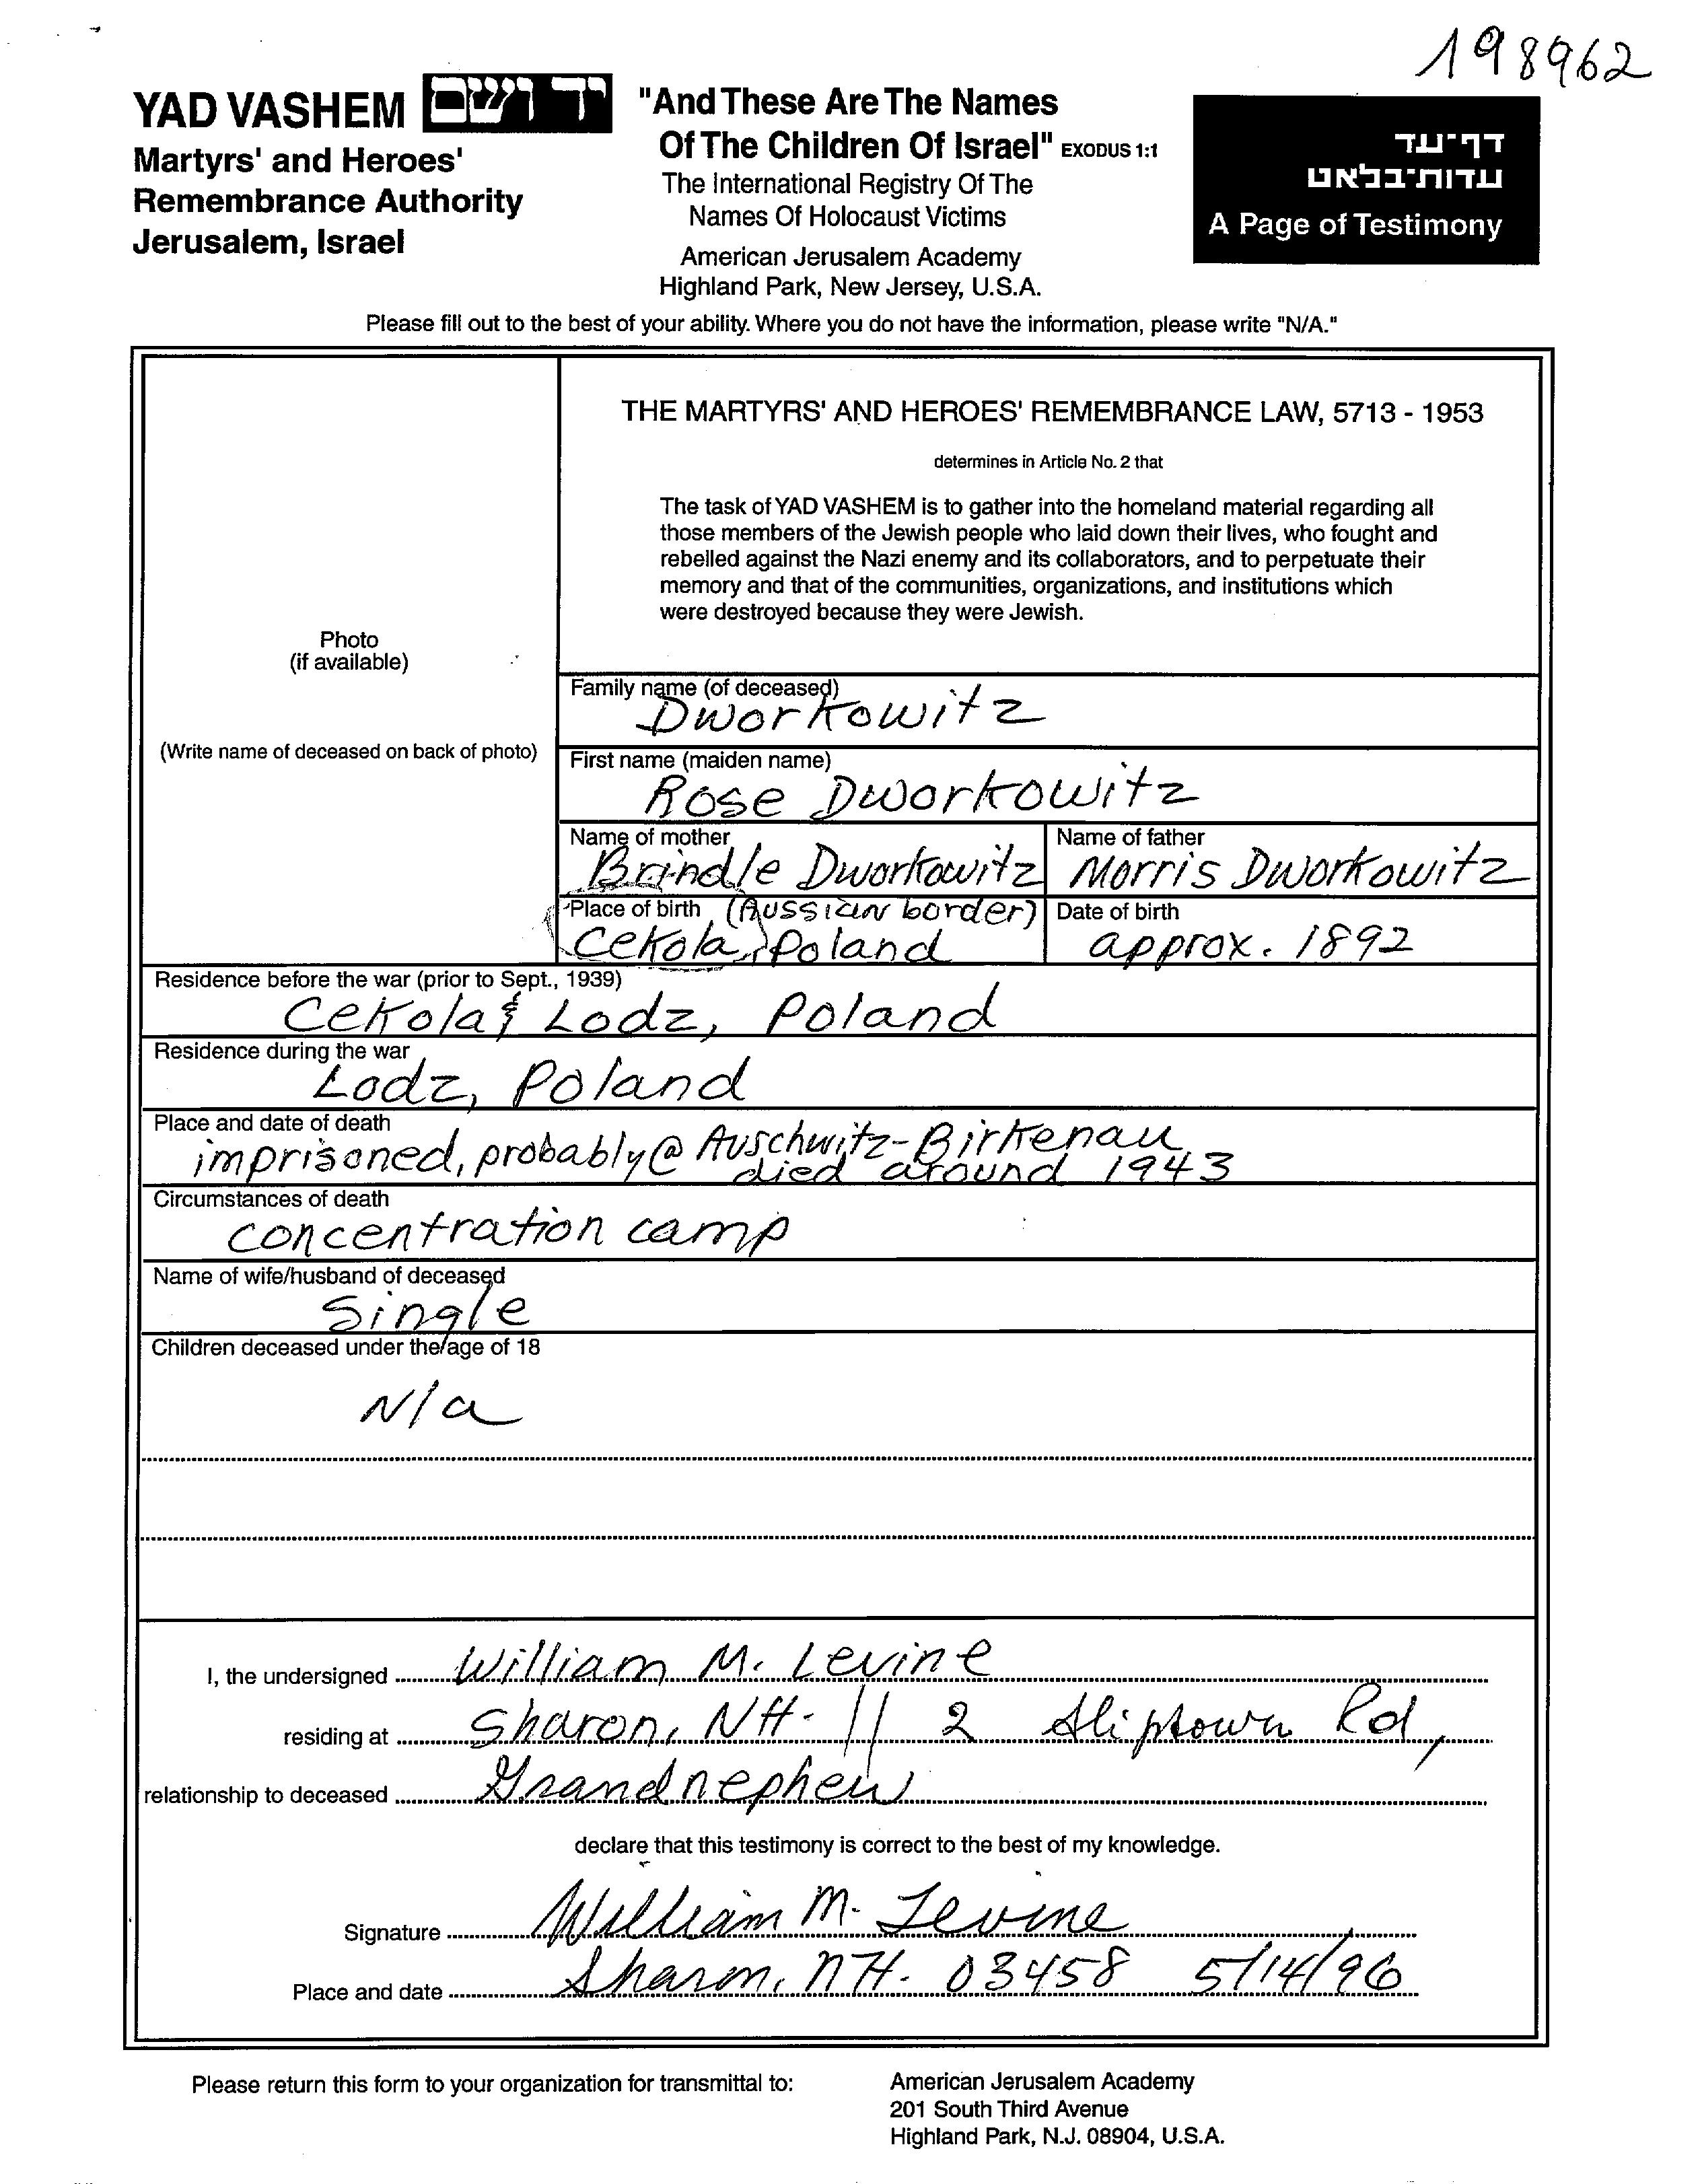 198962
YAD VASHEM יד ושם
Martyrs' and Heroes'
Remembrance Authority
Jerusalem, Israel
"And These Are The Names
Of The Children Of Israel" EXODUS 1:1
The International Registry Of The
Names Of Holocaust Victims
American Jerusalem Academy
Highland Park, New Jersey, U.S.A.
דף-עד
עדות-בלאט
A Page of Testimony
Please fill out to the best of your ability. Where you do not have the information, please write "N/A."
Photo
(if available)
(Write name of deceased on back of photo)
THE MARTYRS' AND HEROES' REMEMBRANCE LAW, 5713 - 1953
determines in Article No. 2 that
The task of YAD VASHEM is to gather into the homeland material regarding all
those members of the Jewish people who laid down their lives, who fought and
rebelled against the Nazi enemy and its collaborators, and to perpetuate their
memory and that of the communities, organizations, and institutions which
were destroyed because they were Jewish.
Family name (of deceased)
Dworkowitz
First name (maiden name)
Rose Dworkowitz
Name of mother
Brindle Dworkowitz
Name of father
Morris Dworkowitz
Place of birth (Russian border)
Cekola, Poland
Date of birth
approx. 1892
Residence before the war (prior to Sept., 1939)
Cekola & Lodz, Poland
Residence during the war
Lodz, Poland
Place and date of death
imprisoned, probably @ Auschwitz-Birkenau
died around 1943
Circumstances of death
concentration camp
Name of wife/husband of deceased
Single
Children deceased under the age of 18
N/a
I, the undersigned William M. Levine
residing at Sharon, NH. // 2 Sliptown Rd,
relationship to deceased Grandnephew
declare that this testimony is correct to the best of my knowledge.
Signature William M. Levine
Place and date Sharon, NH. 03458 5/14/96
Please return this form to your organization for transmittal to:
American Jerusalem Academy
201 South Third Avenue
Highland Park, N.J. 08904, U.S.A.